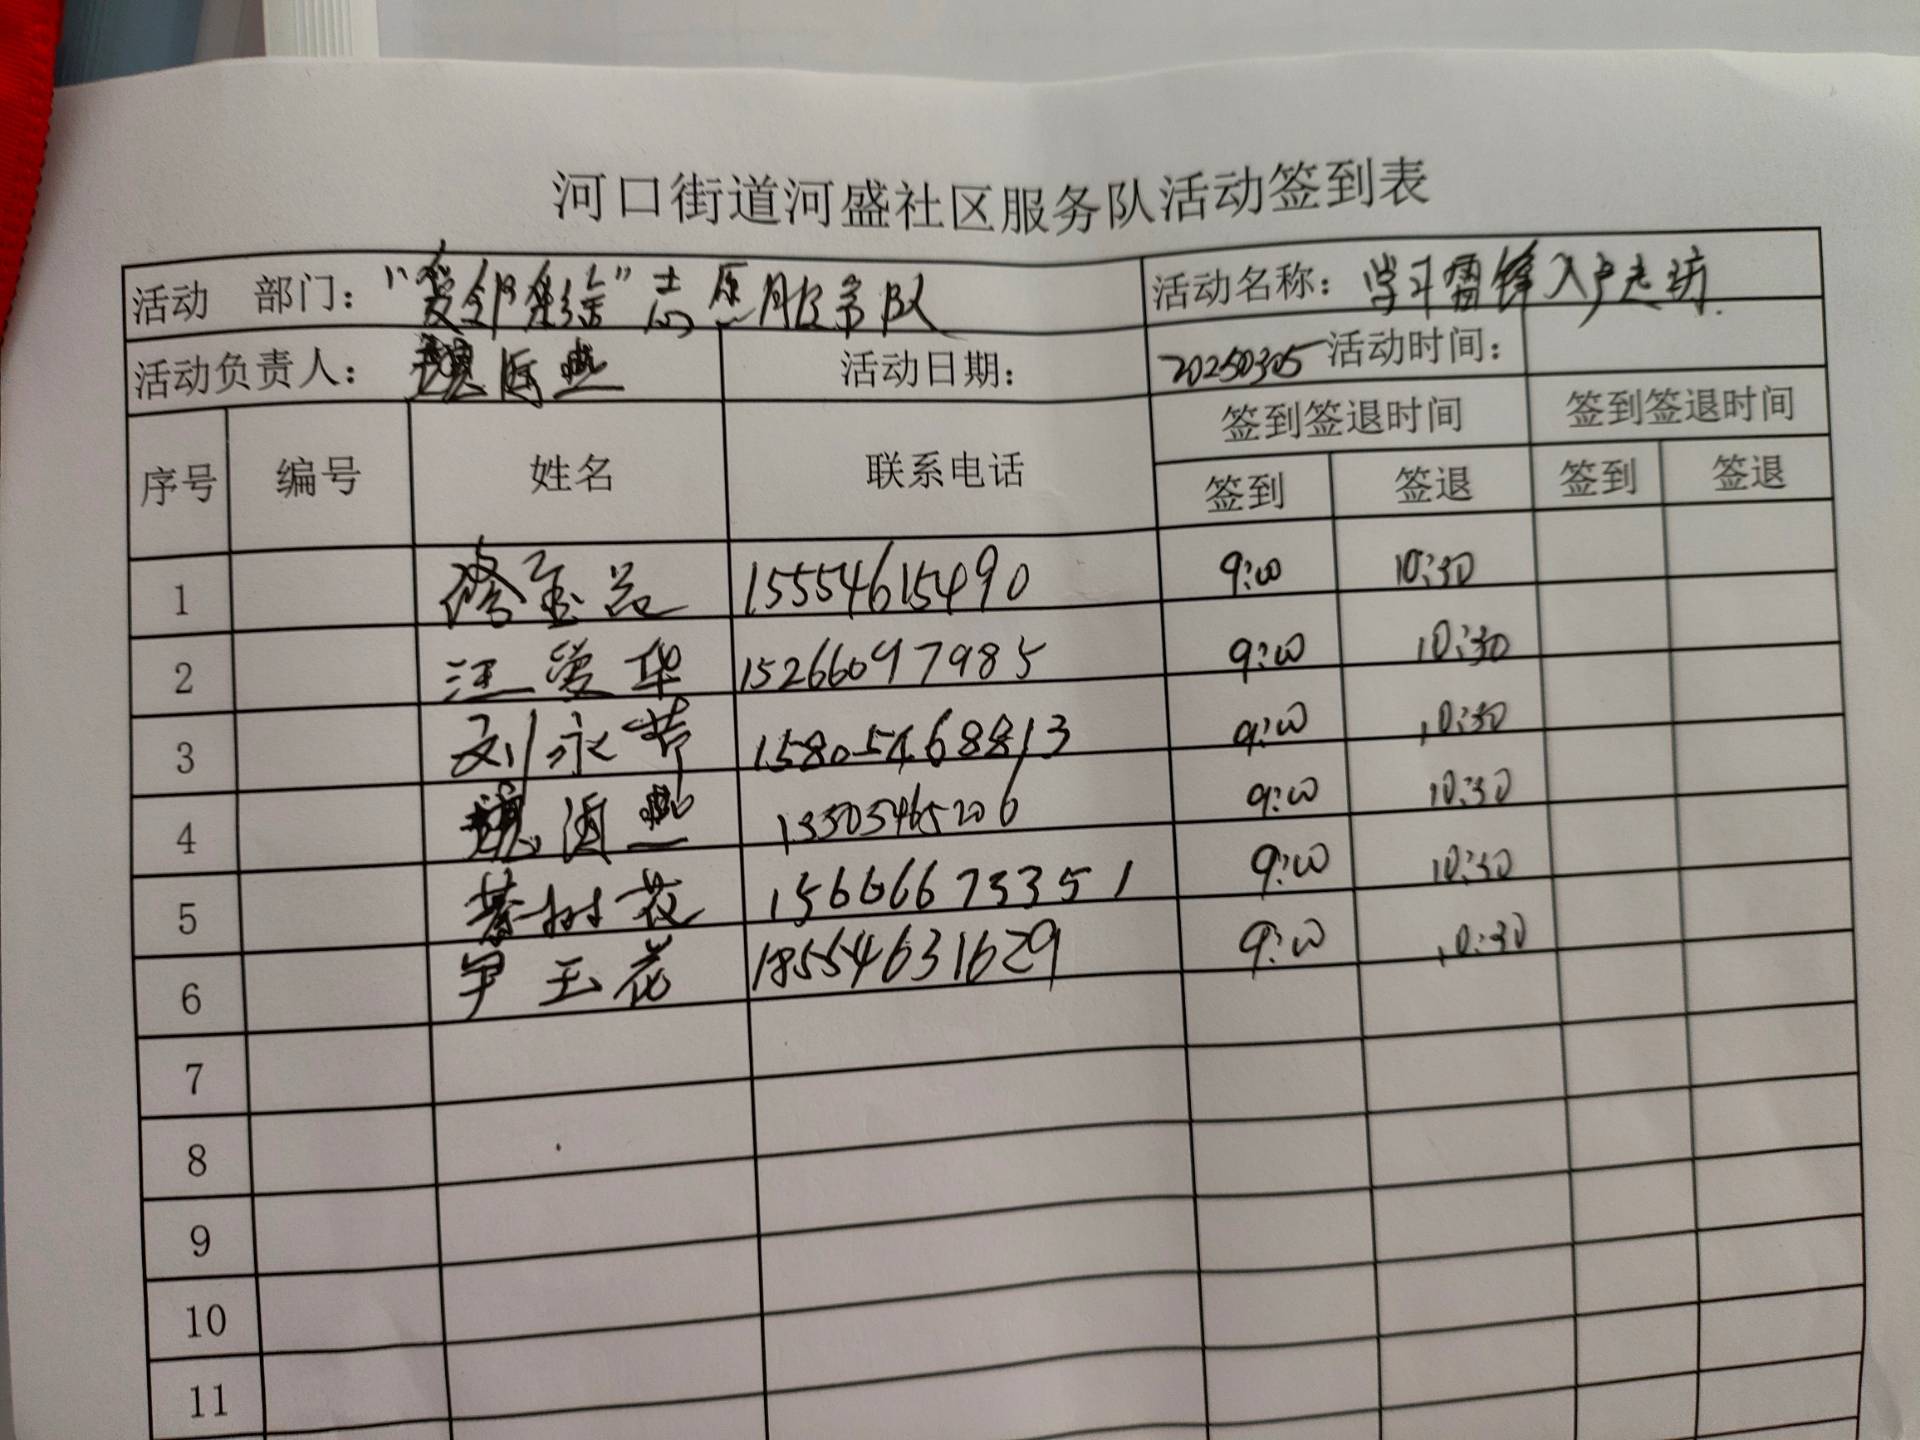 河口街道河盛社区服务队活动签到表
活动 部门： 志愿服务队 活动名称：学习雷锋入户走访.
活动负责人： 魏 燕 活动日期： 20250305 活动时间：
序号 编号 姓名 联系电话 签到签退时间 签到签退时间
签到 签退 签到 签退
1 15554615490 9:00 10:30
2 汪爱华 15266097985 9:00 10:30
3 刘永芹 15805468813 9:00 10:30
4 魏 燕 9:00 10:30
5 树花 15666673351 9:00 10:30
6 玉花 18554631629 9:00 10:30
7
8
9
10
11